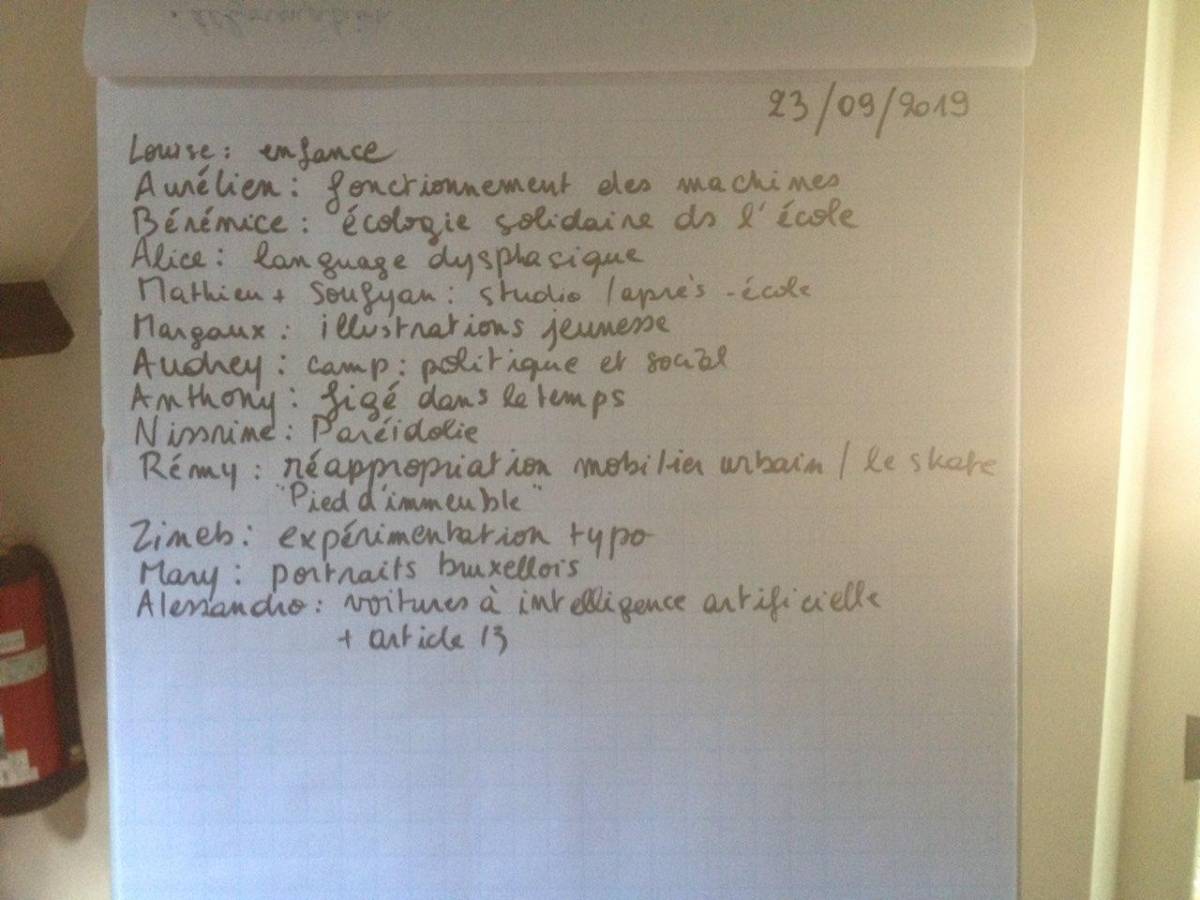 23/09/2019
Louise : enfance
Aurélien : fonctionnement des machines
Bérénice : écologie solidaire ds l'école
Alice : language dysphasique
Mathieu + Soufyan : studio / après-école
Margaux : illustrations jeunesse
Audrey : camp : politique et social
Anthony : figé dans le temps
Nissrine : Paréidolie
Rémy : réappropriation mobilier urbain / le skate
"Pied d'immeuble"
Zineb : expérimentation typo
Mary : portraits bruxellois
Alessandro : voitures à intelligence artificielle
+ article 13